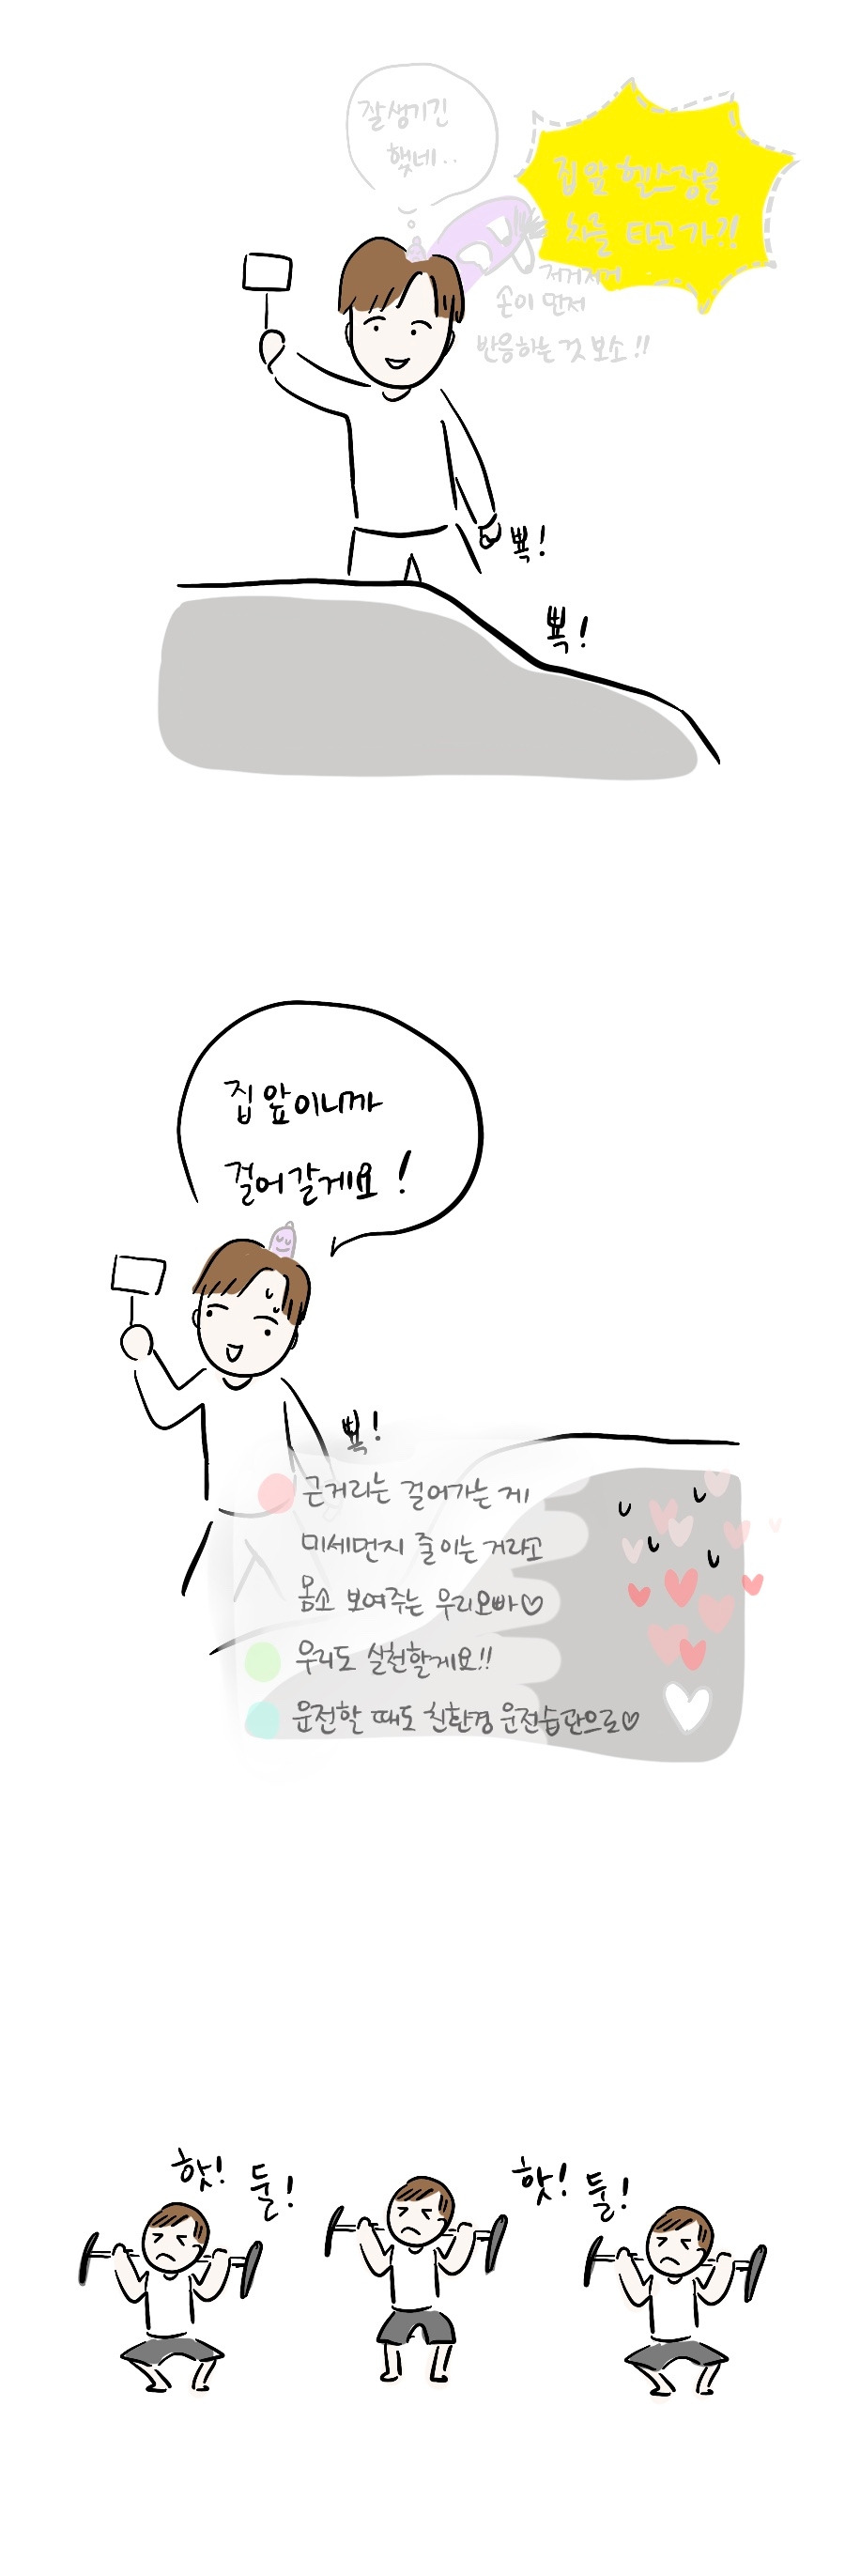 잘생기긴
했네..
집 앞 헬스장을
차를 타고 가?!
저거저거
손이 먼저
반응하는 것 보소!!
뾱!
뾱!
집 앞이니까
걸어갈게요!
뾱!
근거리는 걸어가는 게
미세먼지 줄이는 거라고
몸소 보여주는 우리오빠♡
우리도 실천할게요!!
운전할 때도 친환경 운전습관으로♡
핫! 둘!
핫! 둘!